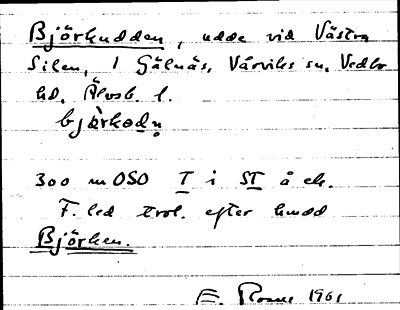 Björkudden, udde vid Västra
Silen, 1 Gälnäs, Vårviks sn, Vedbo
hd, Älvsb. l.
bjò̤rkødṇ
300 m OSO T i ST å ek.
F. led trol. efter hmdd
Björken.
E. 1961